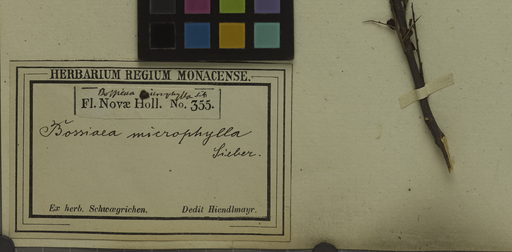 HERBARIUM REGIUM MONACENSE.
Bossiaea microphylla Sib.
Fl. Novæ Holl. No. 355.
Bossiaea microphylla
Sieber.
Ex herb. Schwægrichen. Dedit Hiendlmayr.